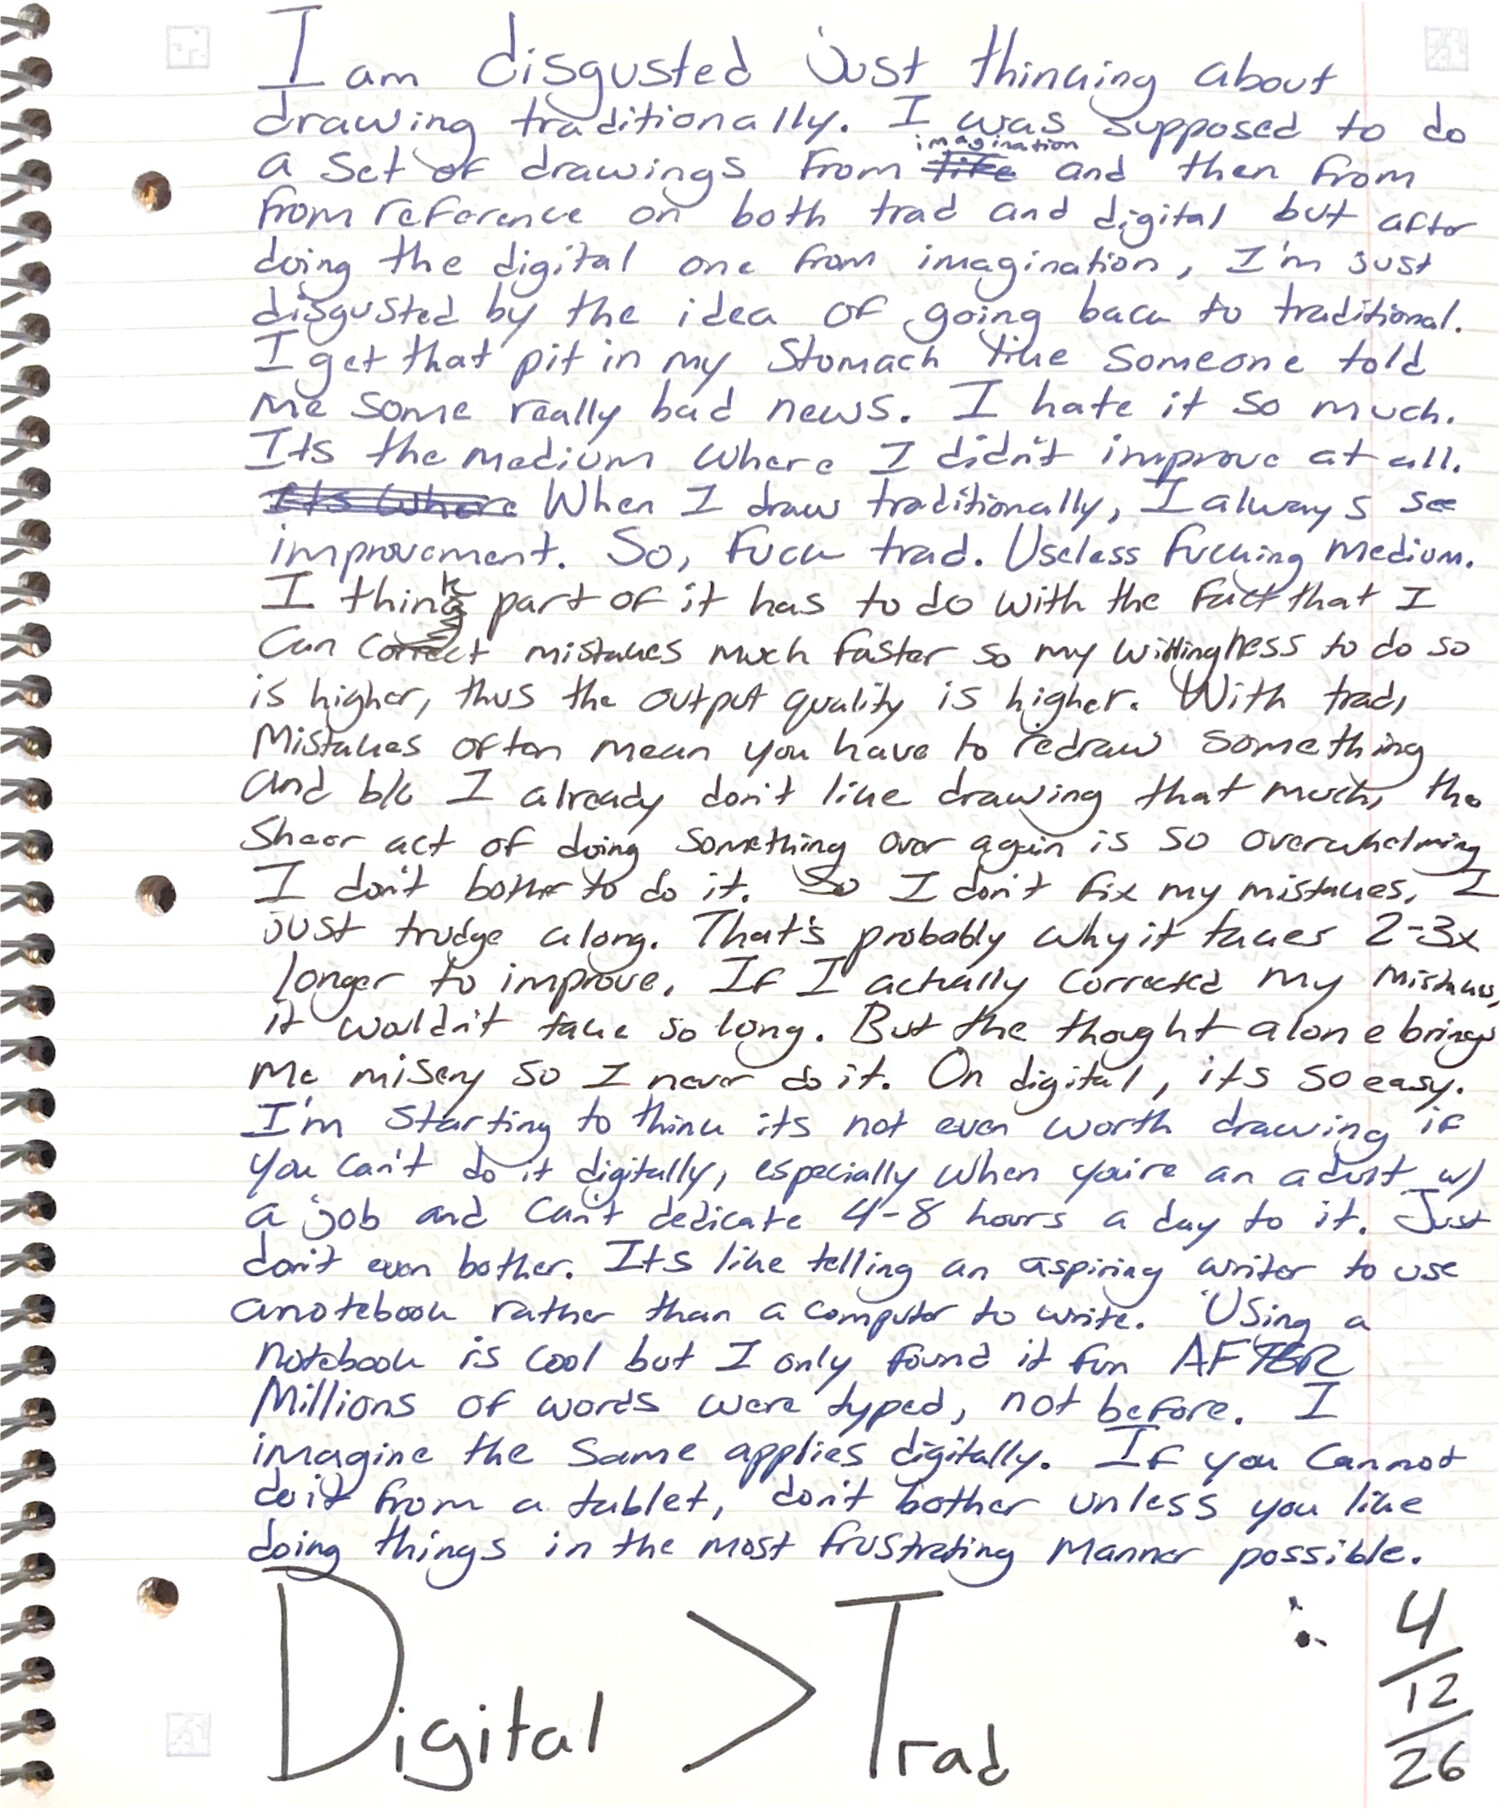 I am disgusted just thinking about
drawing traditionally. I was supposed to do
imagination
a set of drawings from ~~like~~ and then from
from reference on both trad and digital but after
doing the digital one from imagination, I'm just
disgusted by the idea of going back to traditional.
I get that pit in my stomach like someone told
me some really bad news. I hate it so much.
Its the medium where I didn't improve at all.
~~Its where~~ When I draw traditionally, I always see
improvement. So, fuck trad. Useless fucking medium.
I think part of it has to do with the fact that I
can correct mistakes much faster so my willingness to do so
is higher, thus the output quality is higher. With trad,
mistakes often mean you have to redraw something
and b/c I already don't like drawing that much, the
sheer act of doing something over again is so overwhelming
I don't bother to do it. So I don't fix my mistakes, I
just trudge along. That's probably why it takes 2-3x
longer to improve. If I actually corrected my mistakes,
it wouldn't take so long. But the thought alone brings
me misery so I never do it. On digital, its so easy.
I'm starting to think its not even worth drawing if
you can't do it digitally, especially when you're an adult w/
a job and can't dedicate 4-8 hours a day to it. Just
don't even bother. Its like telling an aspiring writer to use
a notebook rather than a computer to write. Using a
notebook is cool but I only found it fun AFTER
millions of words were typed, not before. I
imagine the same applies digitally. If you cannot
do it from a tablet, don't bother unless you like
doing things in the most frustrating manner possible.
Digital > Trad
4/12/26